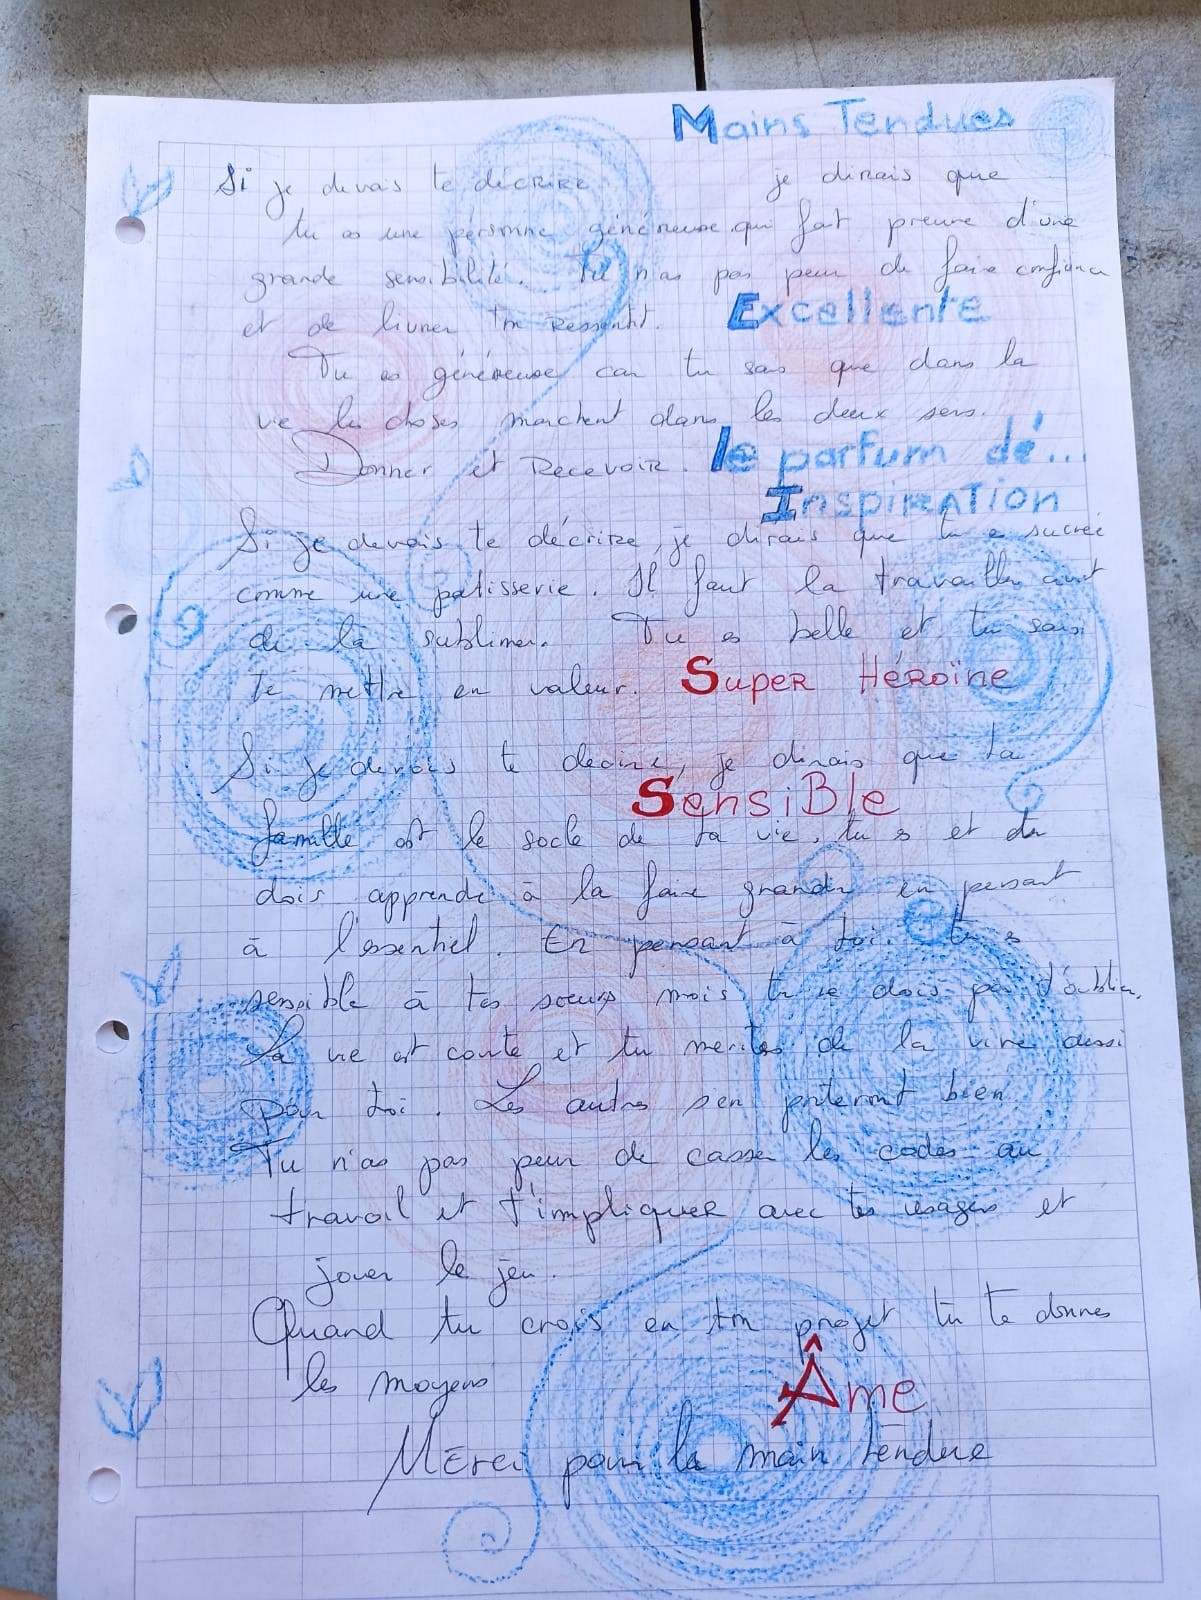 Mains Tendues
Si je devais te décrire je dirais que
tu es une personne généreuse qui fait preuve d'une
grande sensibilité. Tu n'as pas peur de faire confiance
et de livrer ton ressentit.
Excellente
Tu es généreuse car tu sais que dans la
vie les choses marchent dans les deux sens.
Donner et Recevoir.
le parfum dé...
Inspiration
Si je devais te décrire, je dirais que tu e sucrée
comme une patisserie. Il faut la travailler avant
de la sublimer. Tu es belle et tu sais
te mettre en valeur.
Super Héroïne
Si je devais te décrire, je dirais que ta
Sensible
famille est le socle de ta vie, tu s et du
dois apprendre à la faire grandir en pensant
à l'essentiel. En pensant à toi. tu s
sensible à tes soeurs mais tu ne dois pas t'oublier.
La vie est courte et tu merites de la vivre aussi
pour toi. Les autres s'en porteront bien
Tu n'as pas peur de casser les codes au
travail et t'impliquer avec tes usagers et
jouer le jeu.
Quand tu crois en ton projet tu te donnes
les moyens
Âme
Merci pour la main tendue